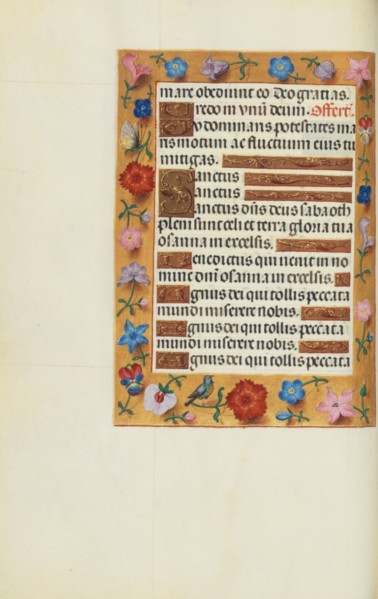 mare obediunt eo Deo gratias.
Credo in vnū deum. Offert.
Tv dominaris potestates ma
ris motum ac fluctuum eius tu
mitigas.
Sanctus
Sanctus
Sanctus dn̄s deus sabaoth
pleni sunt celi et terra gloria tua
osanna in excelsis.
Benedictus qui venit in no
mine dn̄i osanna in excelsis.
Agnus dei qui tollis peccata
mundi miserere nobis.
Agnus dei qui tollis peccata
mundi miserere nobis.
Agnus dei qui tollis peccata